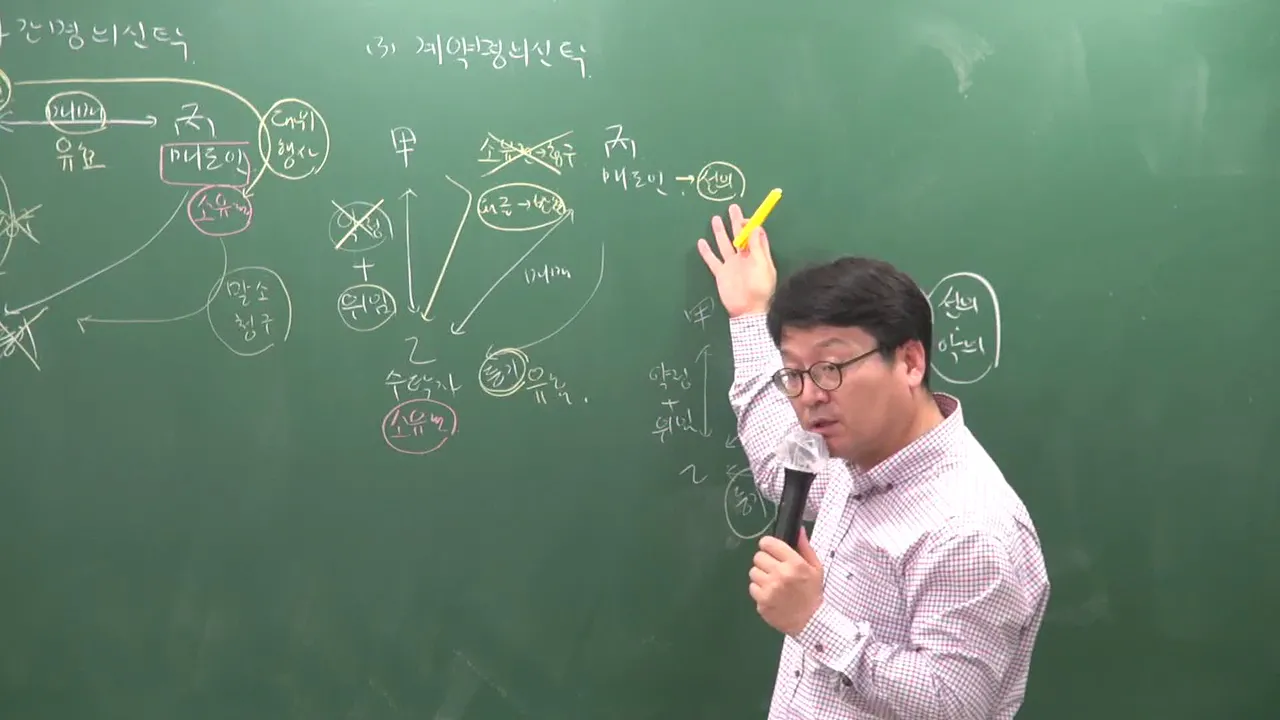 간명의신탁
(3) 계약명의신탁
매매
유효
丙
매도인
소유권
대위
행사
말소
청구
甲
약정
+
위임
乙
수탁자
소유권
소유권→청구
대금→반환
매매
등기 유효.
丙
매도인 → 선의
甲
약정
+
위임
乙
등기
선의
악의